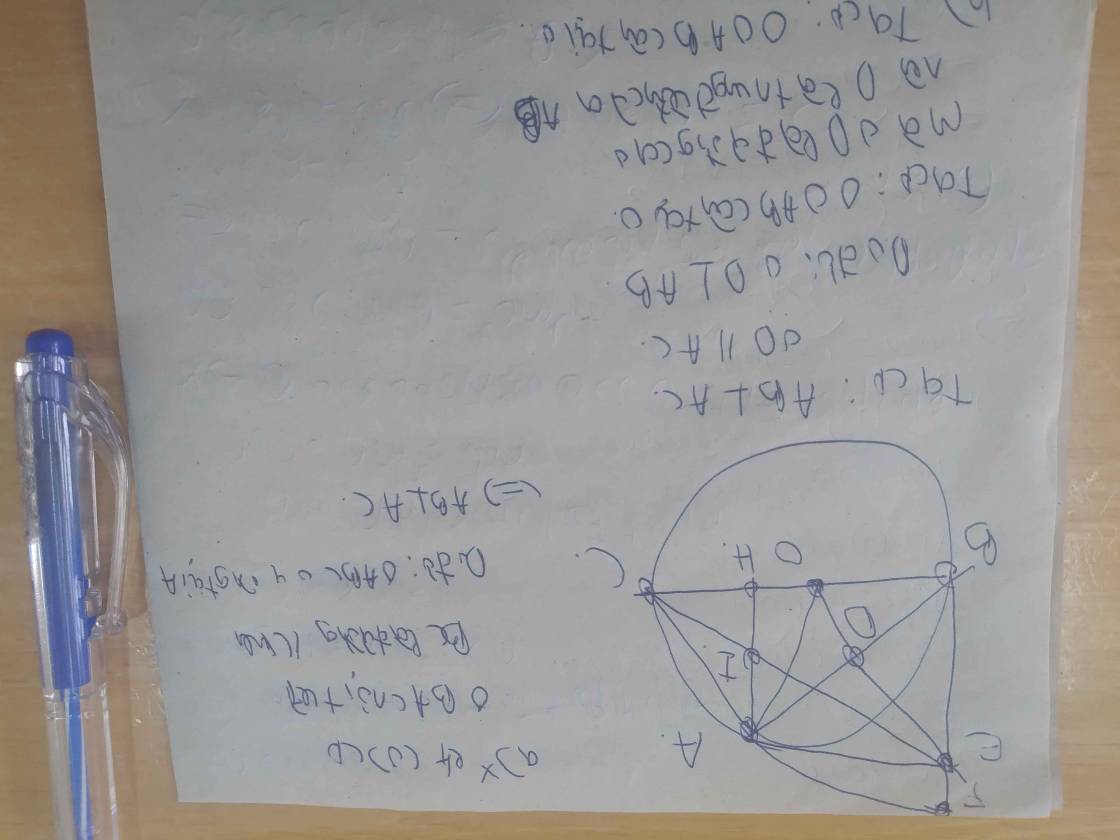 a) Xét (O) có
Δ BAC nội tiếp
BC là đường kính
Do đó: ΔABC vuông tại A
(=) AB⊥AC.
A
C
I
H
O
D
B
E
F
Ta có: AB⊥AC.
OD // AC.
Do đó: OD⊥AB
Ta có: OAB cân tại O.
Mà OD là đường cao
là D là trung điểm của AB
b) Ta có: OAB cân tại O